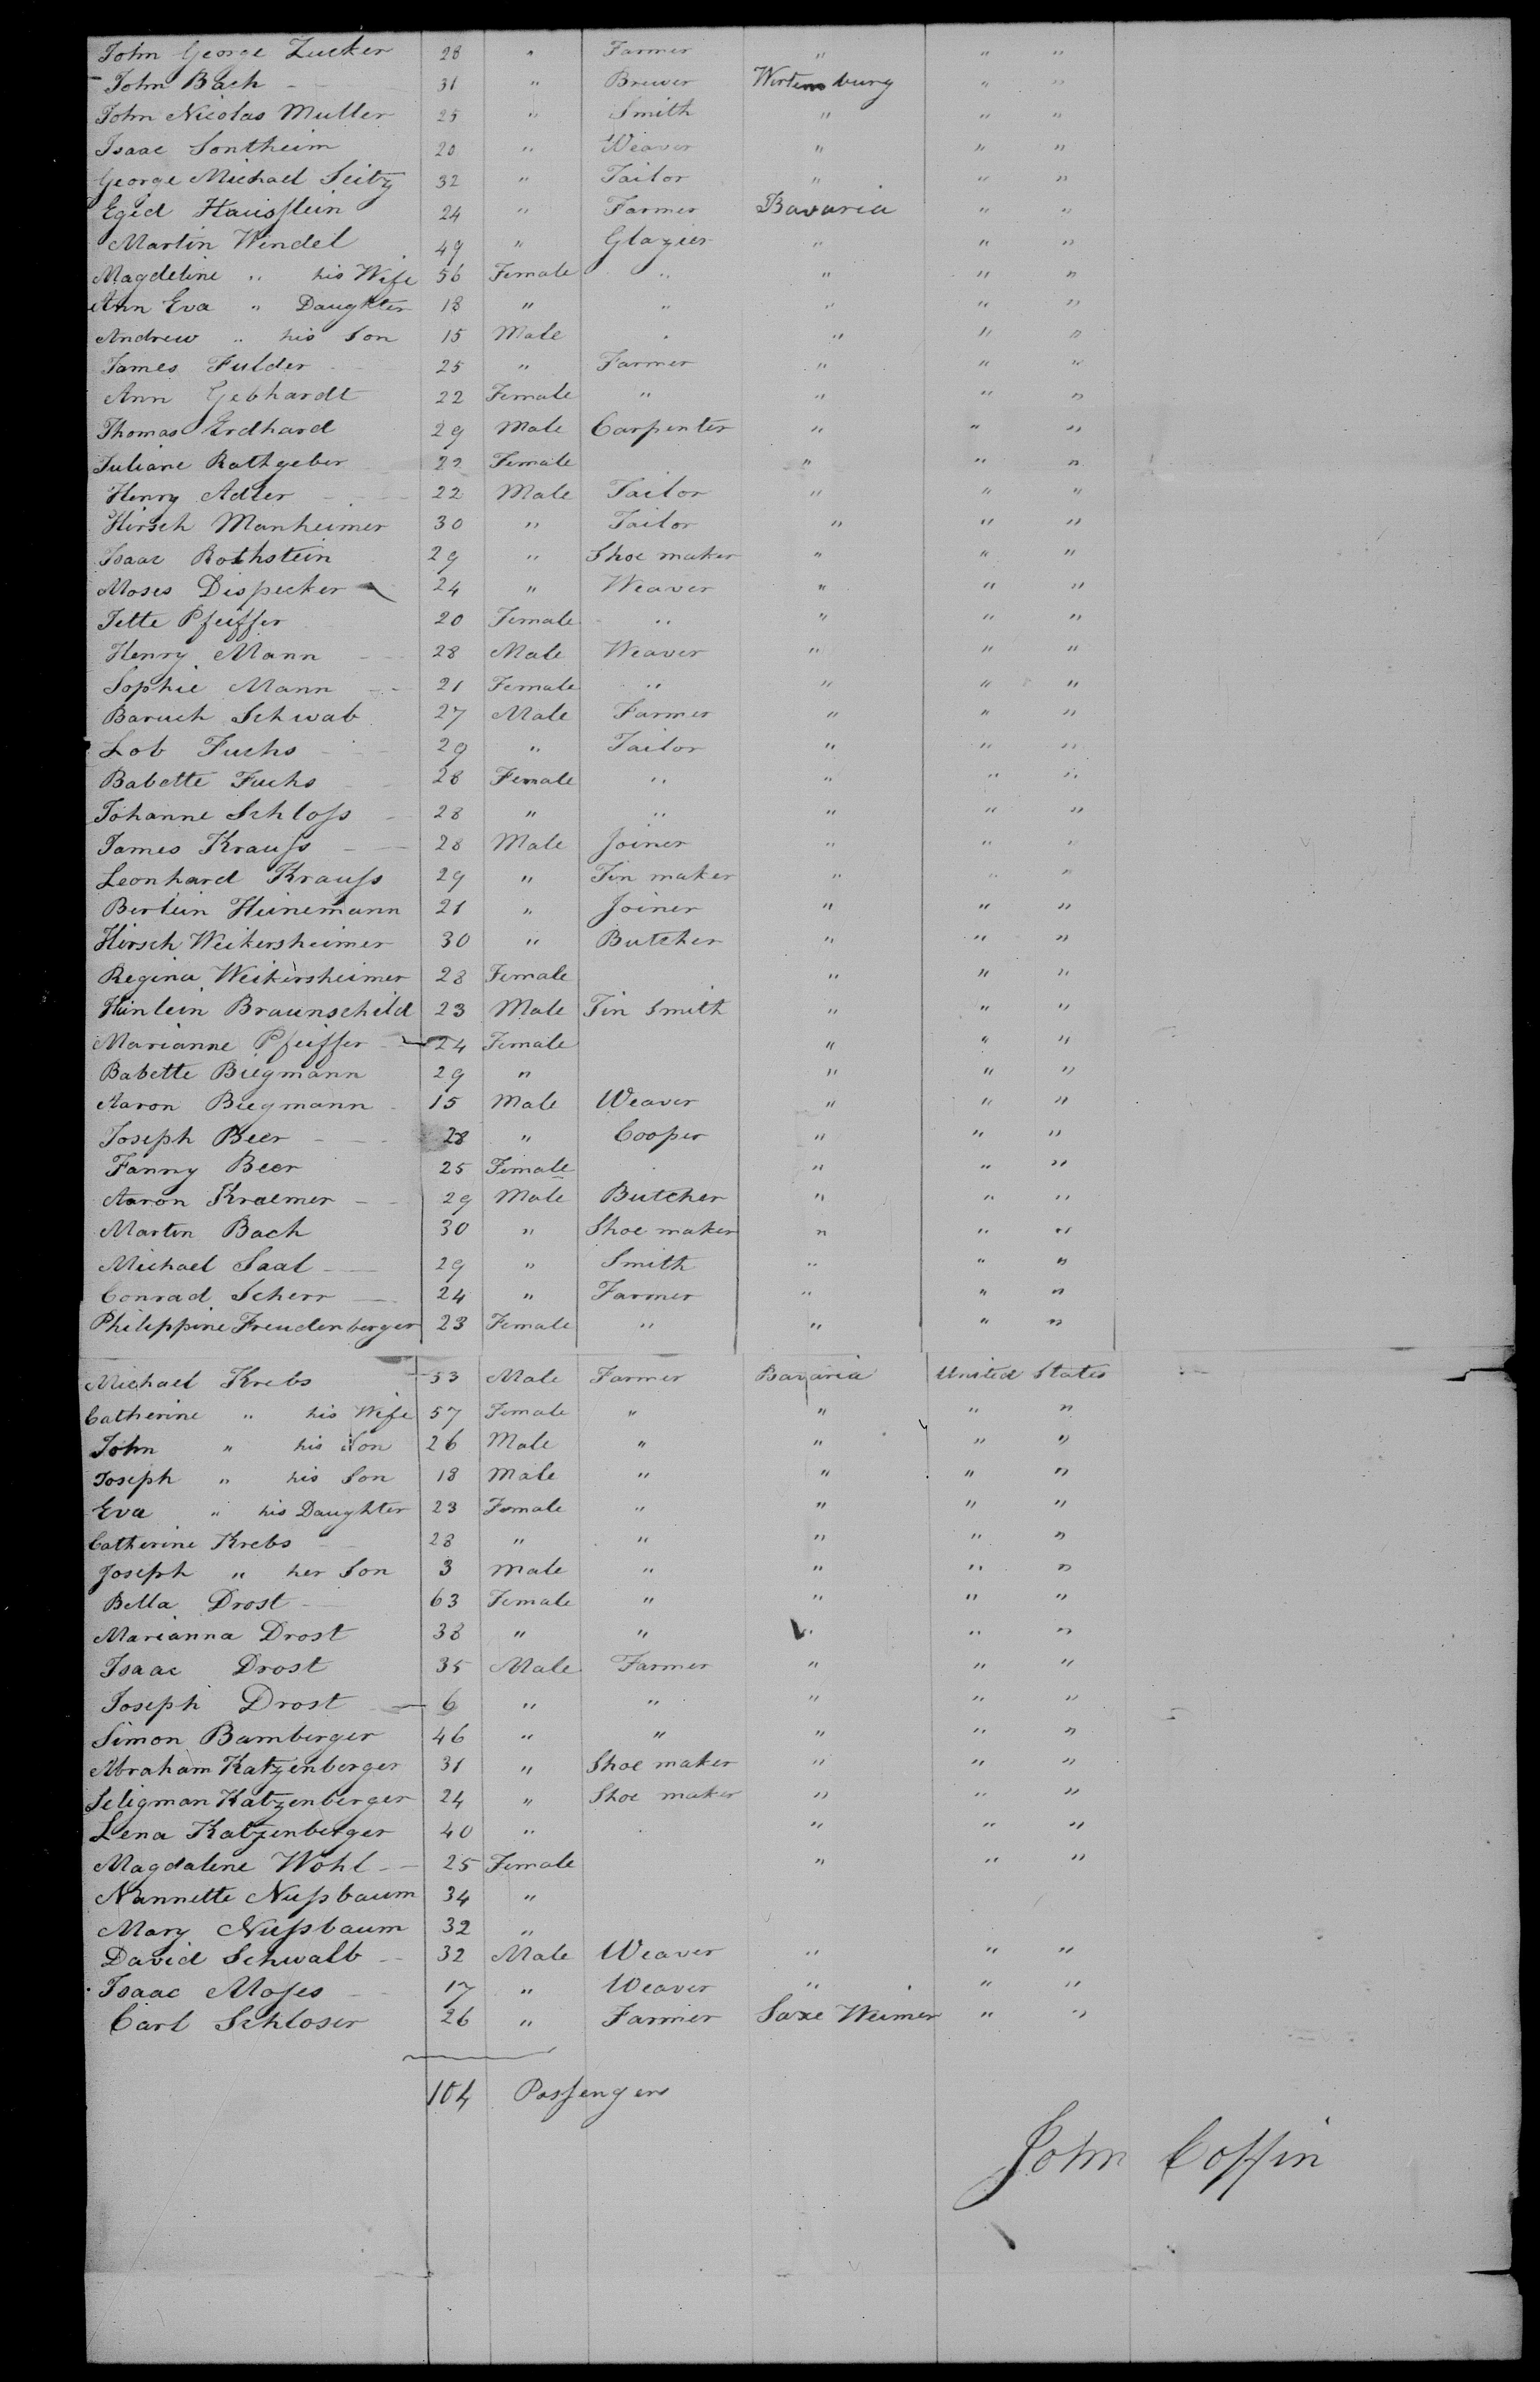 John George Zucker 28 " Farmer " " "
John Bach 31 " Brewer Wirtemburg " "
John Nicolas Muller 25 " Smith " " "
Isaac Sontheim 20 " Weaver " " "
George Michael Seitz 32 " Tailor " " "
Egid Hausslein 24 " Farmer Bavaria " "
Martin Windel 49 " Glazier " " "
Magdeline " his Wife 56 Female " " " "
Ann Eva " Daughter 18 " " " " "
Andrew " his Son 15 Male " " " "
James Fulder 25 " Farmer " " "
Ann Gebhardt 22 Female " " " "
Thomas Erdhard 29 Male Carpenter " " "
Juliane Rathgeber 22 Female " " "
Henry Adler 22 Male Tailor " " "
Hirsch Manheimer 30 " Tailor " " "
Isaac Rothstein 29 " Shoe maker " " "
Moses Dispecker 24 " Weaver " " "
Jette Pfeiffer 20 Female " " " "
Henry Mann 28 Male Weaver " " "
Sophie Mann 21 Female " " " "
Baruch Schwab 27 Male Farmer " " "
Lob Fuchs 29 " Tailor " " "
Babette Fuchs 28 Female " " " "
Johanne Schloss 28 " " " " "
James Krauss 28 Male Joiner " " "
Leonhard Krauss 29 " Tin maker " " "
Berlein Heinemann 21 " Joiner " " "
Hirsch Weikersheimer 30 " Butcher " " "
Regina Weikersheimer 28 Female " " "
Heinlein Braunschild 23 Male Tin Smith " " "
Marianne Pfeiffer 24 Female " " "
Babette Biegmann 29 " " " "
Aaron Biegmann 15 Male Weaver " " "
Joseph Beer 28 " Cooper " " "
Fanny Beer 25 Female " " "
Aaron Kraemer 29 Male Butcher " " "
Martin Bach 30 " Shoe maker " " "
Michael Saal 29 " Smith " " "
Conrad Scherr 24 " Farmer " " "
Philippine Freudenberger 23 Female " " " "
Michael Krebs 53 Male Farmer Bavaria United States
Catherine " his Wife 57 Female " " " "
John " his Son 26 Male " " " "
Joseph " his Son 18 Male " " " "
Eva " his Daughter 23 Female " " " "
Catherine Krebs 28 " " " " "
Joseph " her Son 3 Male " " " "
Bella Drost 63 Female " " " "
Marianna Drost 38 " " " " "
Isaac Drost 35 Male Farmer " " "
Joseph Drost 6 " " " " "
Simon Bamberger 46 " " " " "
Abraham Katzenberger 31 " Shoe maker " " "
Seligman Katzenberger 24 " Shoe maker " " "
Lena Katzenberger 40 " " " "
Magdalene Wohl 25 Female " " "
Nannette Nussbaum 34 "
Mary Nussbaum 32 "
David Schwalb 32 Male Weaver " " "
Isaac Moses 17 " Weaver " " "
Carl Schloser 26 " Farmer Saxe Weimer " "
104 Passengers
John Coffin